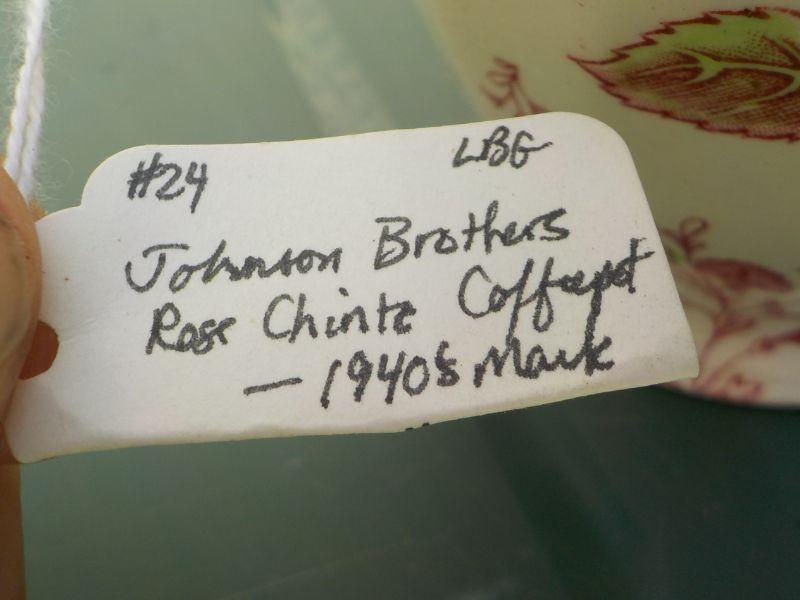 #24 LBG
Johnson Brothers
Rose Chintz Coffeepot
— 1940s Mark